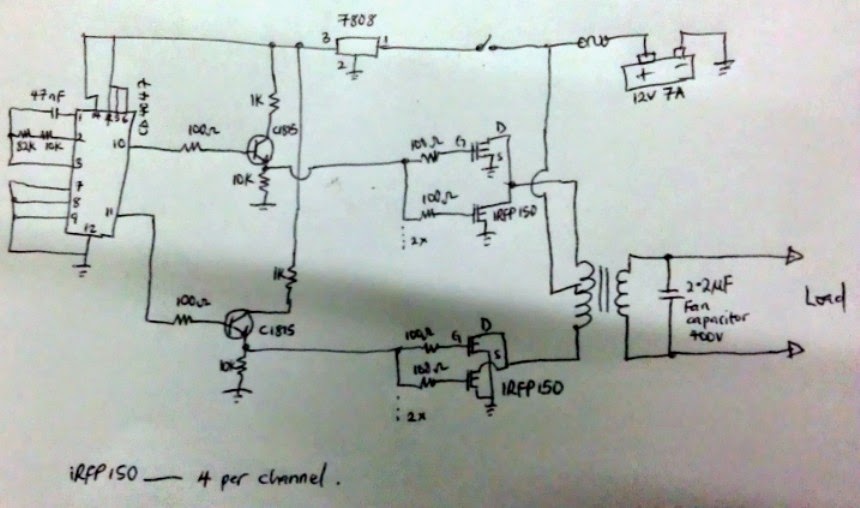 7808
3
1
2
12V 7A
+ -
47nF
14 4 5 6
CD4047
1
82K 10K
2
3
10
7
8
9
11
12
1K
100Ω
C1815
10K
100Ω
G
D
S
100Ω
IRFP150
2x
1K
100Ω
C1815
10K
100Ω
G
D
S
100Ω
IRFP150
2x
2.2µF
Fan
capacitor
400V
Load
iRFP150 — 4 per channel.